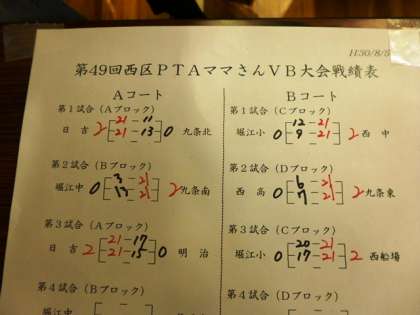 H.30/8/
第49回西区PTAママさんVB大会戦績表
Aコート
第1試合(Aブロック)
日吉 2 21-11 0 九条北
21-13
第2試合(Bブロック)
堀江中 0 3-21 2 九条南
13-21
第3試合(Aブロック)
日吉 2 21-17 0 明治
21-15
第4試合(B
Bコート
第1試合(Cブロック)
堀江小 0 12-21 2 西中
9-21
第2試合(Dブロック)
西高 0 6-21 2 九条東
7-21
第3試合(Cブロック)
堀江小 0 20-21 2 西船場
17-21
第4試合(Dブロック)